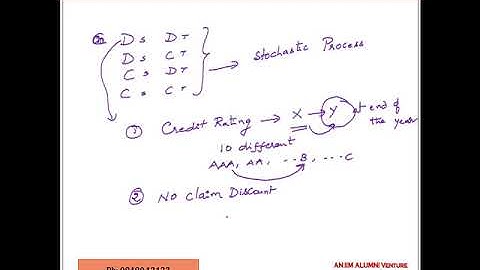 Ds DT
Ds CT
Cs DT
Cs CT
Stochastic Process
① Credit Rating → X → Y at end of the year
10 different
AAA, AA, --B, ---C
② No Claim Discount
AN IIM ALUMNI VENTURE